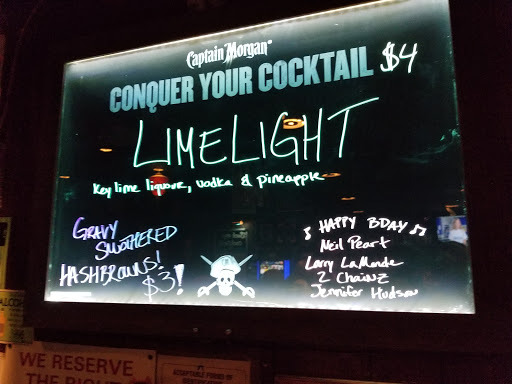 Captain Morgan
CONQUER YOUR COCKTAIL $4
LIMELIGHT
Key lime liquore, vodka & pineapple
GRAVY
SMOTHERED
HASHBROWNS!
$3!
♪ HAPPY BDAY ♪♪
Neil Peart
Larry LaMonde
2 Chainz
Jennifer Hudson
WE RESERVE
THE RIGHT
ACCEPTABLE FORMS OF